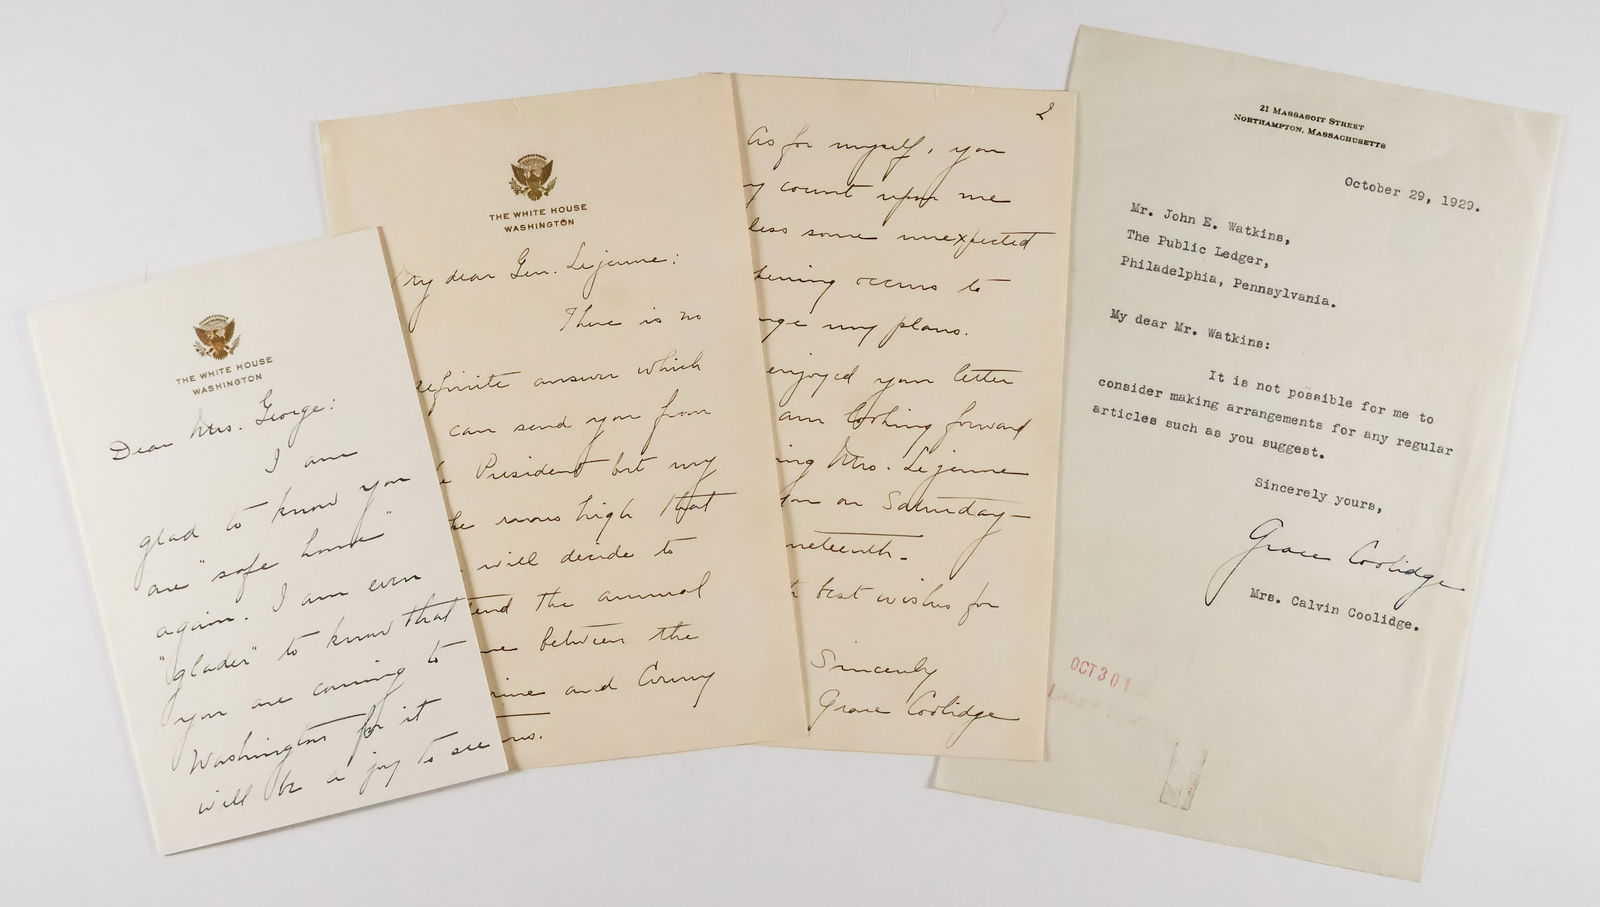 THE WHITE HOUSE
WASHINGTON
Dear Mrs. George:
I am
glad to know you
are "safe home"
again. I am even
"glader" to know that
you are coming to
Washington for it
will be a joy to see
THE WHITE HOUSE
WASHINGTON
My dear Gen. Lejeune:
There is no
definite answer which
can send you from
President but my
hope runs high that
will decide to
attend the annual
between the
and Army
2
As for myself, you
count upon me
unless some unexpected
occurs to
my plans.
enjoyed your letter
am looking forward
Mrs. Lejeune
on Saturday—
nineteenth.
best wishes for
Sincerely
Grace Coolidge
21 MASSASOIT STREET
NORTHAMPTON, MASSACHUSETTS
October 29, 1929.
Mr. John E. Watkins,
The Public Ledger,
Philadelphia, Pennsylvania.
My dear Mr. Watkins:
It is not possible for me to
consider making arrangements for any regular
articles such as you suggest.
Sincerely yours,
Grace Coolidge
Mrs. Calvin Coolidge.
OCT 30 1